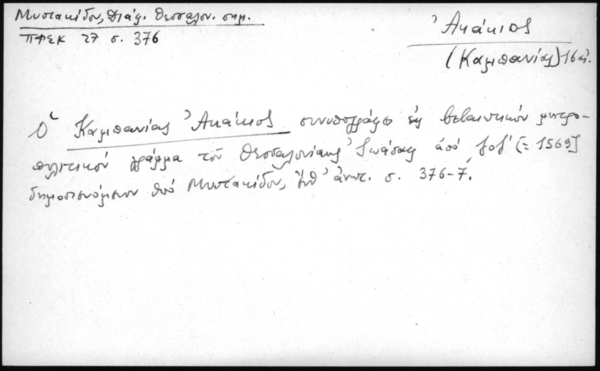 Μυστακίδου, Διάφ. Θεσσαλον. σημ.
ΠΦΣΚ 27 σ. 376
Ἀκάκιος
(Καμπανίας) 16 αἰ.
Ὁ Καμπανίας Ἀκάκιος συνυπογράφει εἰς βεβαιωτικὸν μητρο-
πολιτικὸν γράμμα τοῦ Θεσσαλονίκης Ἰωάσαφ ἀπὸ (= 1569)
δημοσιευόμενον ὑπὸ Μυστακίδου, ἔνθ' ἀνωτ. σ. 376-7.